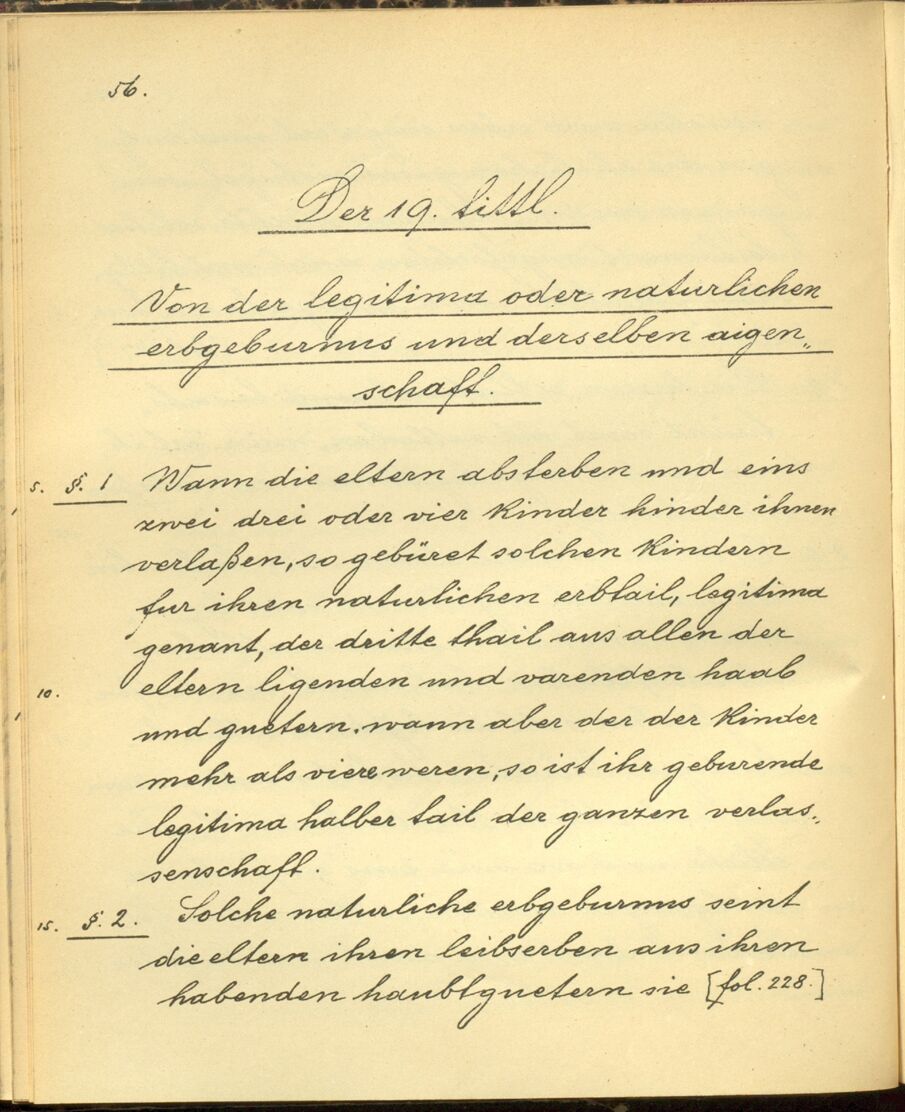 56.
Der 19. tittl.
Von der legitima oder naturlichen
erbgeburnus und derselben aigen„
schaft.
5. §. 1 Wann die eltern absterben und eins
zwei drei oder vier Kinder hinder ihnen
verlaßen, so gebüret solchen Kindern
fur ihren naturlichen erbtail, legitima
genant, der dritte thail aus allen der
10. eltern ligenden und varenden haab
und guetern. wann aber der der Kinder
mehr als viere weren, so ist ihr geburende
legitima halber tail der ganzen verlas„
senschaft.
15. §. 2. Solche naturliche erbgeburnus seint
die eltern ihren leibserben aus ihren
habenden haubtguetern sie [fol. 228.]